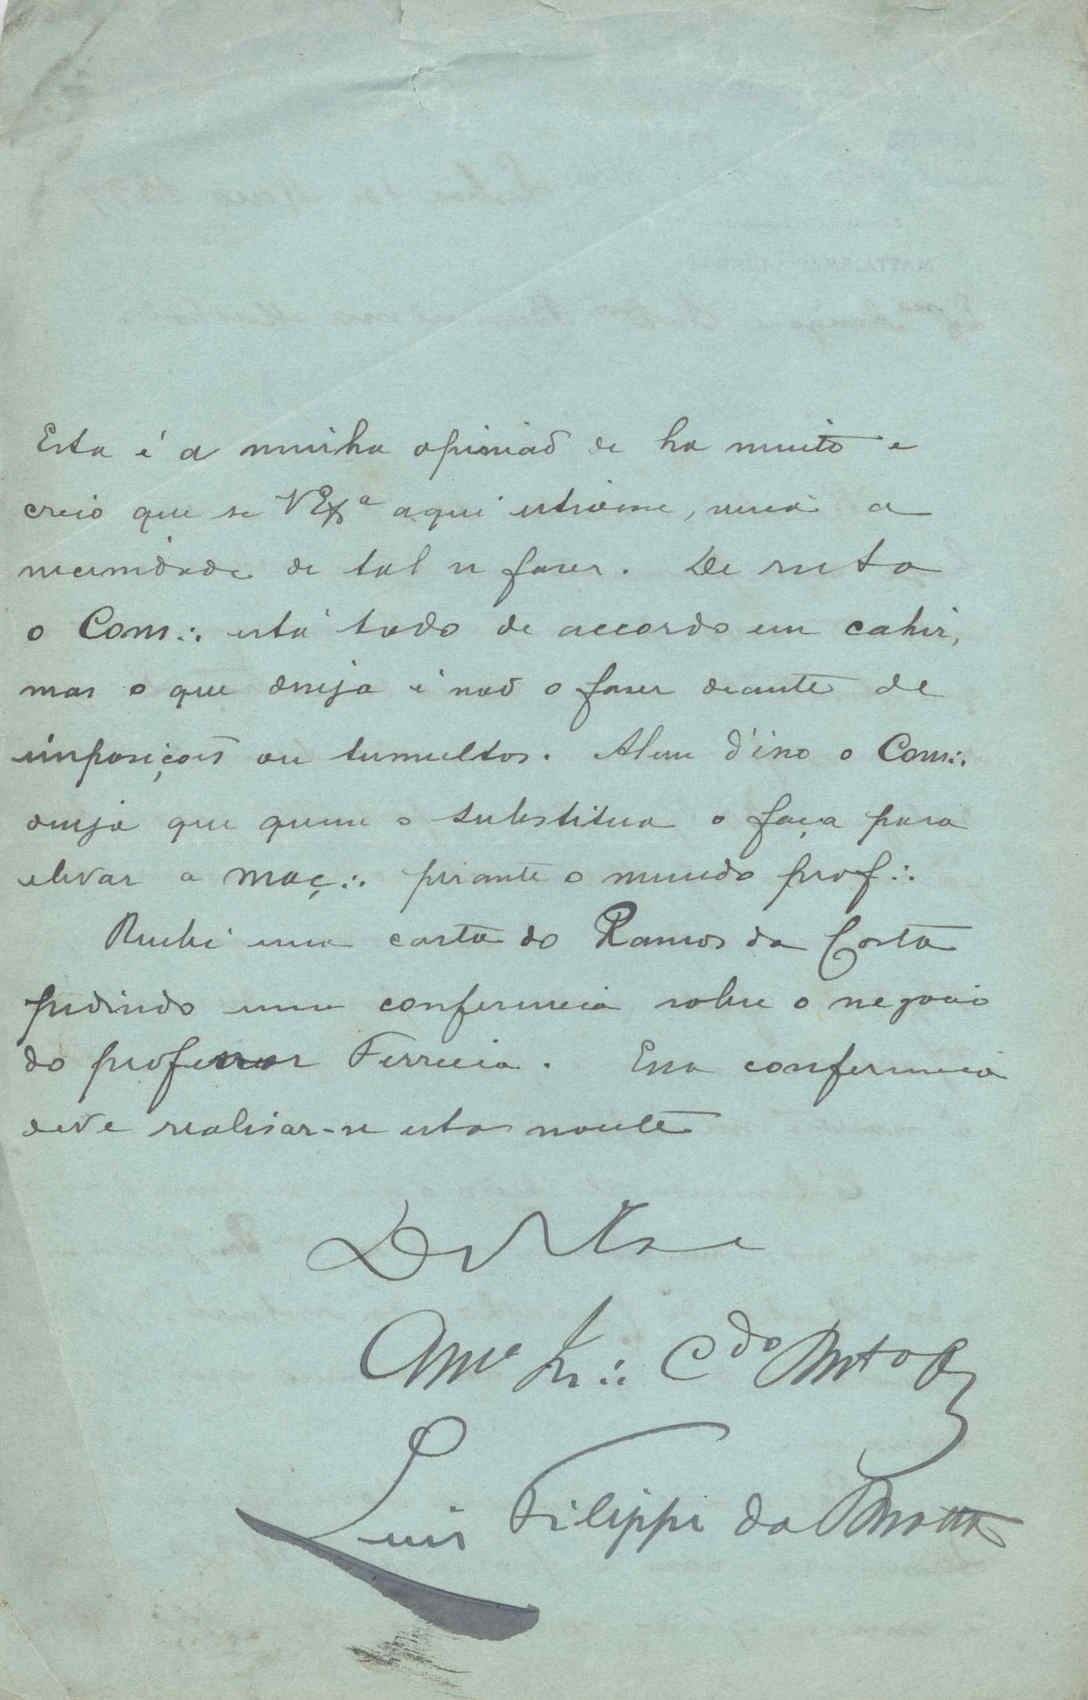 Esta é a minha opinião de ha muito e
creio que se VExª aqui estivesse, veria a
necessidade de tal se fazer. De resto
o Cons∴ está todo de accordo em cahir,
mas o que deseja é não o fazer deante de
imposições ou tumultos. Alem d'isso o Cons∴
deseja que quem o substitua o faça para
elevar a maç∴ perante o mundo prof∴
Recebi uma carta do Ramos da Costa
pedindo uma conferencia sobre o negocio
do professor Ferreira. Essa conferencia
deve realisar-se esta noute
De VExa
Amº Ir∴ Cdo Mto
Luis Filippe da Matta